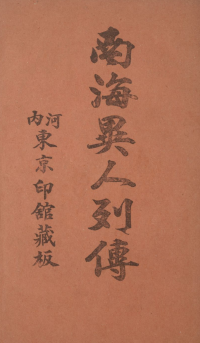 南海異人列傳
河內東京印館藏板